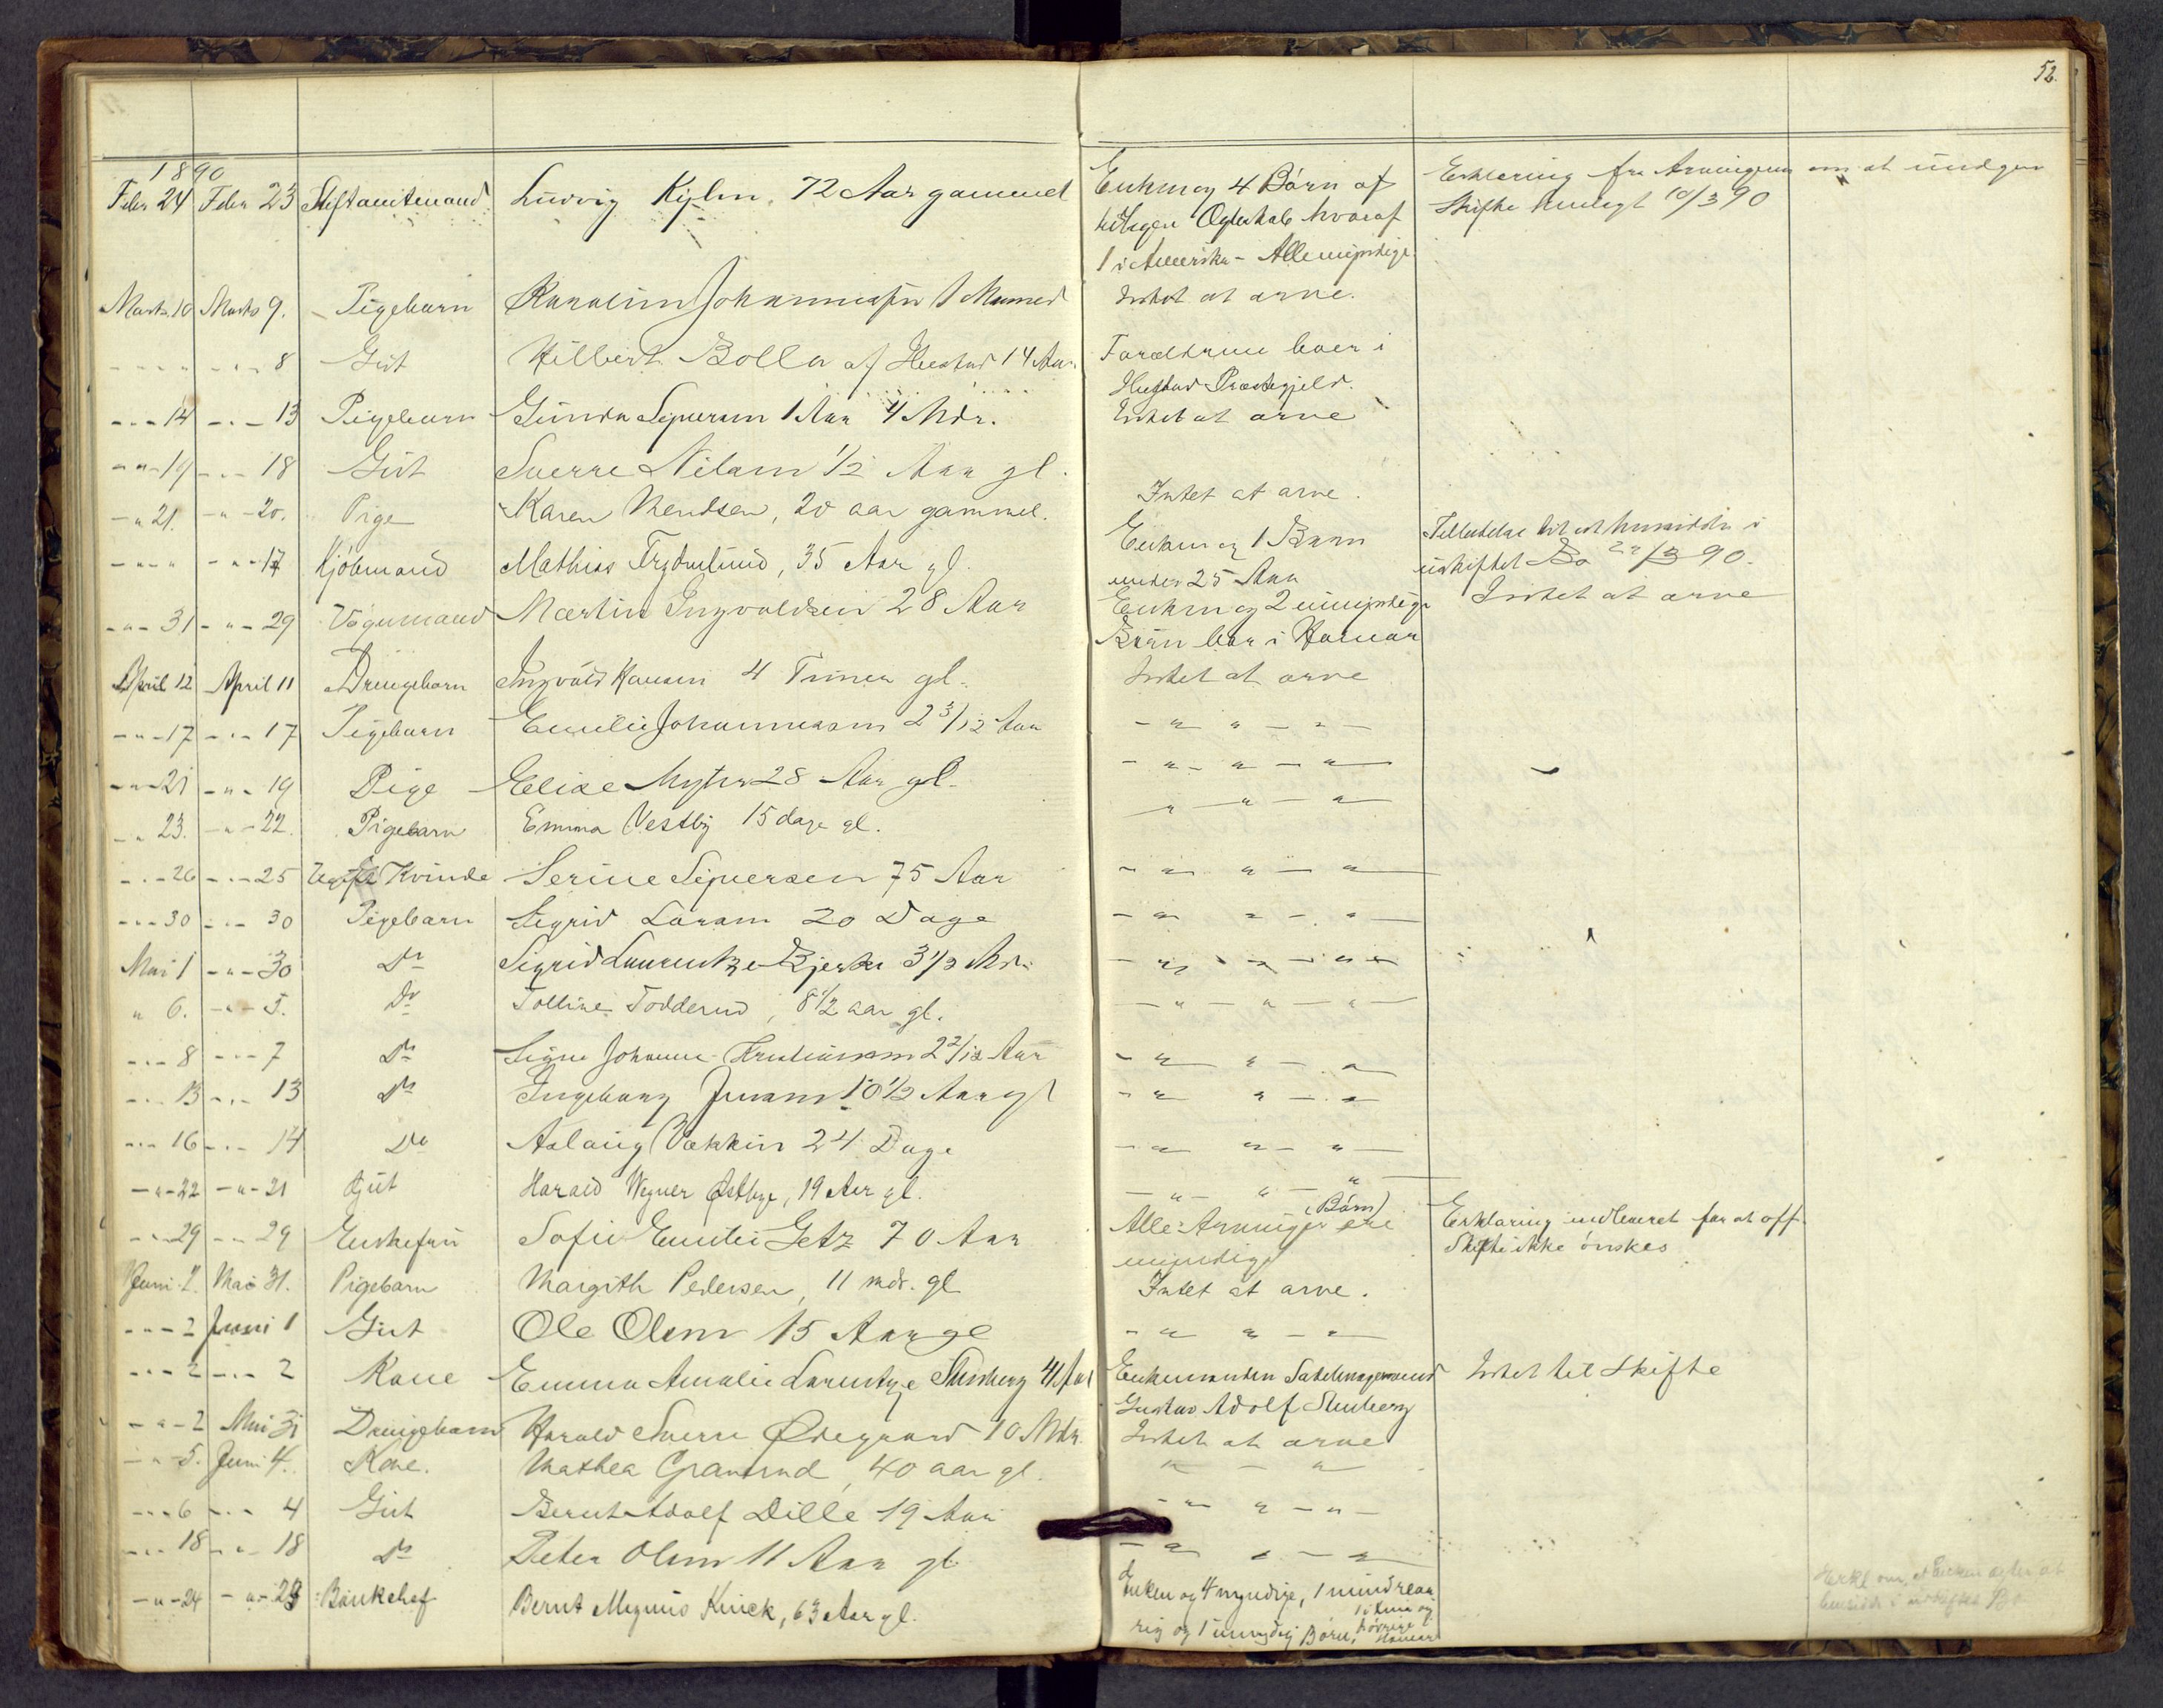 52.
1890
Febr 24 Febr 23 Stiftamtmand Ludvig Kyhn, 72 Aar gammel Enken og 4 Børn af Erklæring fra Arvingerne om at undgaa
Ægteskab hvoraf Skifte 10/3 90
1 i Amerika - Alle myndige
Marts 10 Marts 9. Pigebarn 1 Maaned Intet at arve.
- - - " - - - 8 Gut Hilbert Bolla af Hustad 14 Aar. Forældrene boer i
Hustad Præstegjeld.
- - - 14 - - - 13 Pigebarn Gunda Syversen 1 Aar 4 Mdr. Intet at arve
- " - 19 - - - 18 Gut Sverre Nilsen 1/2 Aar gl.
- " 21. - " - 20. Pige Karen Knudsen, 20 aar gammel. Intet at arve.
- - - " - " - 17 Kjøbmand Mathias Frydenlund, 35 Aar gl. Enken og 1 Barn Tilladelse til at hensidde i
under 25 Aar uskiftet Bo 22/3 90.
- " - 31 - " - 29 Vognmand Martin Ingvaldsen 28 Aar Enken og 2 umyndige Intet at arve
Børn boer i Hamar
April 12 April 11 Drengebarn Ingvald Hansen 4 Timer gl. Intet at arve
- " - 17 - - - 17 Pigebarn Emilie Johannesen 2 3/12 Aar - " " - " -
- " - 21 - " - 19 Pige Elise 28 Aar gl. - " - " - "
- " 23. - " - 22. Pigebarn Emma Vestby 15 dage gl. " - " - "
- - - 26 - - - 25 Ugift Kvinde Serine Syversen 75 Aar - " " - "
- - - 30 - - - 30 Pigebarn Sigrid Larsen 20 Dage - " " - " -
Mai 1 - " - 30 Do Sigrid Laurentze Bjerke 3 1/2 Mdr. - " " - " "
" 6. - " - 5. Do Tolline Todderud, 8 1/2 aar gl. - " - " - "
- - - 8 - - - 7 Do Signe Johanne Kristiansen 2 2/12 Aar - " " - "
- - - 13 - - - 13 Do Ingeborg Jensen 10 1/2 Aar gl - " " - "
- - - 16 - - - 14 Do Aslaug Vakkin 24 Dage - " " - " -
- " - 22 - " - 21 Gut Harald Wegner Østbye, 19 Aar gl. - " - " - " -
- - - 29 - - - 29 Enkefru Sofie Emilie Getz 70 Aar Alle Arvinger (Børn) ere Erklæring indleveret for at off.
myndige Skifte ikke ønskes
Juni 2. Mai 31. Pigebarn Margith Pedersen, 11 mdr. gl Intet at arve.
- - - 2 Juni 1 Gut Ole Olsen 15 Aar gl - " " - "
- - - 2 - - - 2 Kone Emma Amalie Larentze Stenberg 41 Aar Enkemanden Sadelmagersvend Intet til Skifte
Gustav Adolf Stenberg
- " - 2 Mai 31 Drengebarn Harald Sverre Ødegaard 10 Mdr. Intet at arve
- " - 5. Juni 4. Kone. Mathea Gransrud, 40 aar gl. " - "
- - - 6 - - - 4 Gut Bernt Adolf Dille 19 Aar - " " - " -
- - - 18 - - - 18 Do Peter Olsen 11 Aar gl - " " - "
- " - 24 - " - 23 Bankchef Bernt Magnus Kinck, 63 Aar gl. Enken og 4 myndige, 1 mindreaa Erkl om, at Enken agter at
rig og 1 umyndig Børn, hensidde i uskiftet Bo